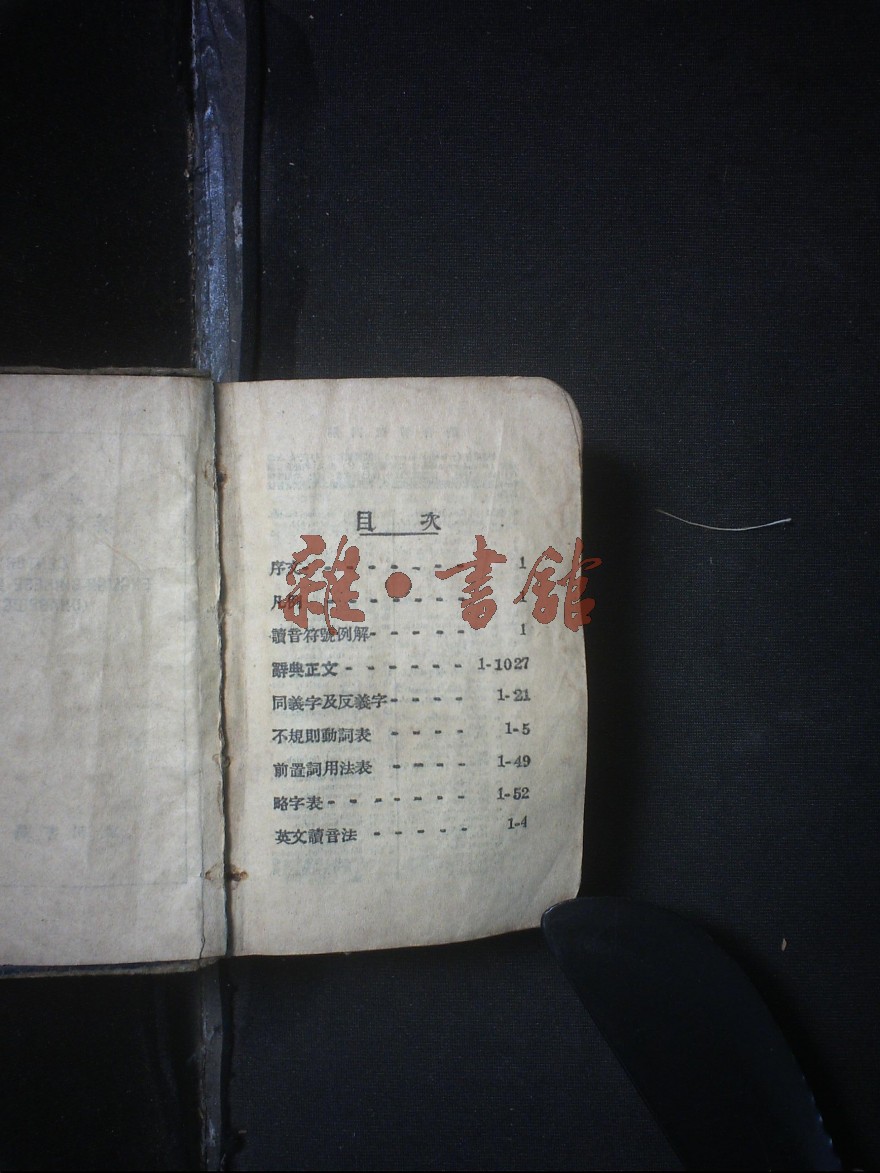 目 次
序文- - - - - - - - 1
凡例 - - - - - - - 1
讀音符號例解- - - - - - 1
辭典正文- - - - - - 1-1027
同義字及反義字- - - - - 1-21
不規則動詞表 - - - - 1-5
前置詞用法表 - - - - - 1-49
略字表- - - - - - - 1-52
英文讀音法 - - - - - 1-4
雜·書館